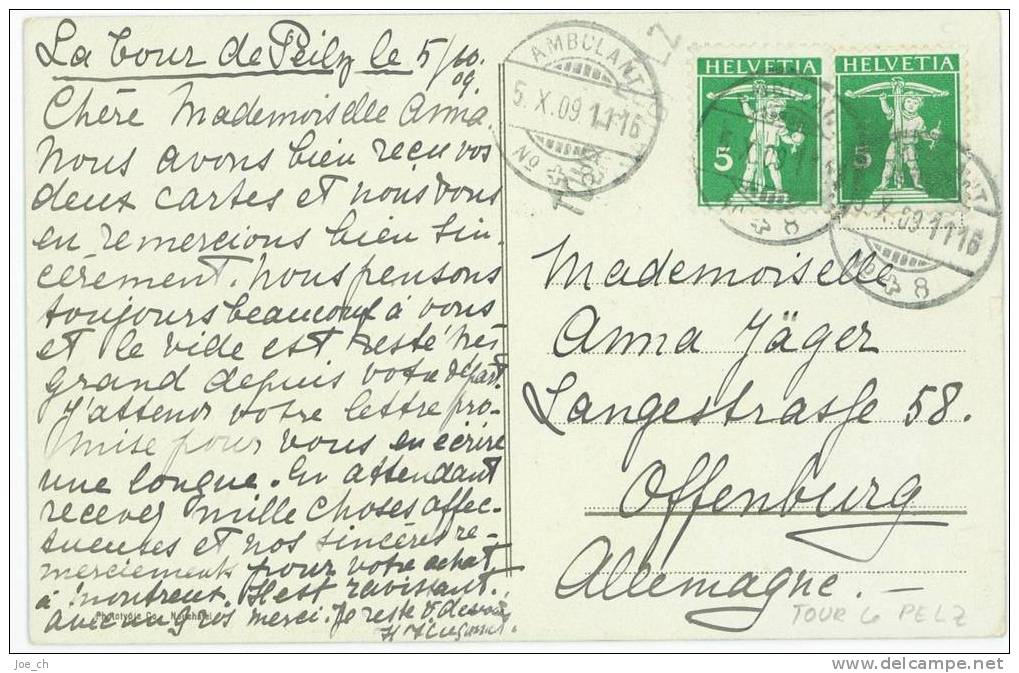 La Tour de Peilz le 5/10.
09.
Chère Mademoiselle Anna.
Nous avons bien reçu vos
deux cartes et nous vous
en remercions bien sin-
cérement. Nous pensons
toujours beaucoup à vous
et le vide est resté très
grand depuis votre départ.
J'attends votre lettre pro-
mise pour vous en écrire
une longue. En attendant
recevez mille choses affec-
tueuses et nos sincères re-
merciements pour votre achat
à Montreux. Il est ravissant.
Avec un gros merci. Je reste v. dévouée
Phototypie Co., Neuchâtel
AMBULANT
5.X.09 11 16
No 8
HELVETIA
5
HELVETIA
5
9 X.09 11 16
No 8
Mademoiselle
Anna Jäger
Langestrasse 58.
Offenburg
Allemagne.
TOUR PELZ
Joe_ch
http://www.delcampe.net